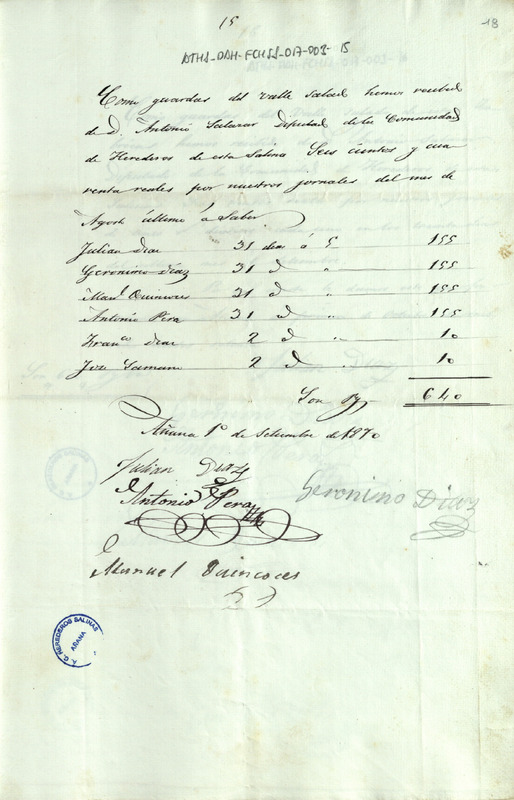 15
18
ATHA-DAH-FCHSS-017-003-15
Como guardas del valle salado hemos recibido
de D. Antonio Salazar Diputado de la Comunidad
de Herederos de esta Salina Seis cientos y cua
renta reales por nuestros jornales del mes de
Agosto último á Saber
Julian Diaz 31 dias á 5 155
Geronimo Diaz 31 d " 155
Man.l Quincoces 31 d " 155
Antonio Pera 31 d " 155
Fran.co Diaz 2 d " 10
Jose Samano 2 d " 10
Son 640
Añana 1º de Setiembre de 1870
Julian Diaz
Antonio Pera
Geronimo Diaz
Manuel Quincoces
HEREDEROS SALINAS
AÑANA